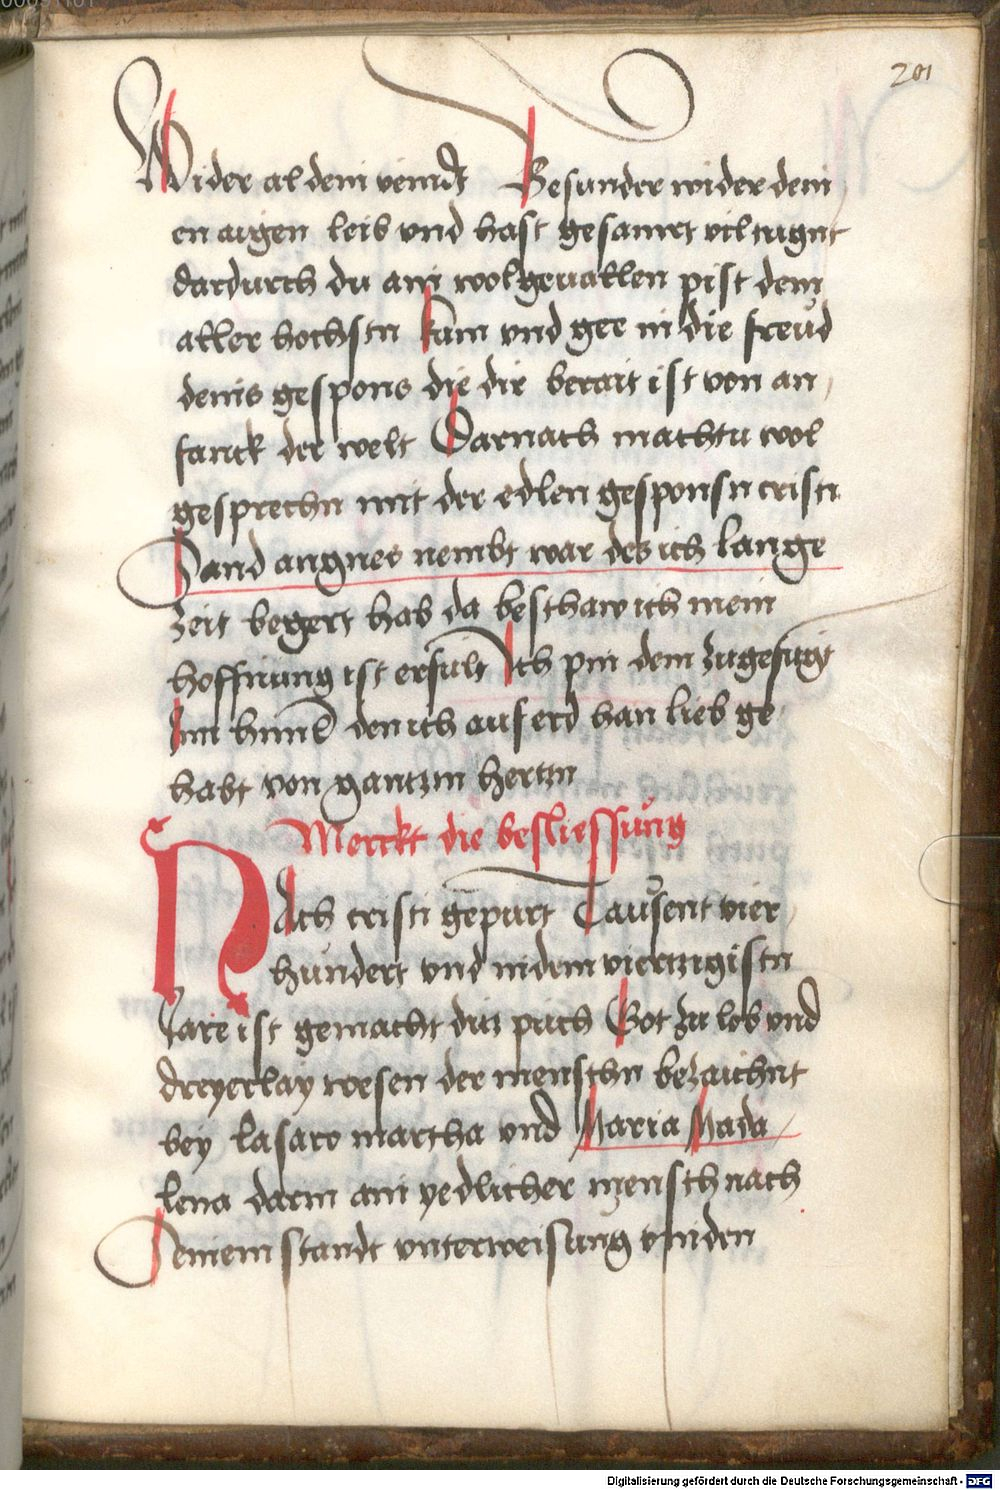 201
Wider al dein veindt Besunder wider dein
en aigen leib vnd hast gesamet vil tugnt
dardurch du ain wolgeuallen pist dem
aller hochstn kam vnd gee in die freud
deins gespons die dir berait ist von an
fanck der welt Darnach machtu wol
gesprechn mit der edlen gesponsn cristi
Sand angnes nembt war des ich lange
zeit begert hab da beschaw ich mein
hoffnung ist erfult Ich pin dem zugefugt
Im himel den ich auf erd han lieb ge
habt von gantzm hertzn
Merckt die besliessung
Nach cristi gepurt Tausent vier
hundert vnd in dem viertzigistn
Iare ist gemacht ditz puch Got zu lob vnd
dreyerlay wesen der menschn bezaichnt
bey lasaro martha vnd Maria Mada
lena darin ain yedlicher mensch nach
Seinem standt vnterweisung vinden
Digitalisierung gefördert durch die Deutsche Forschungsgemeinschaft - DFG